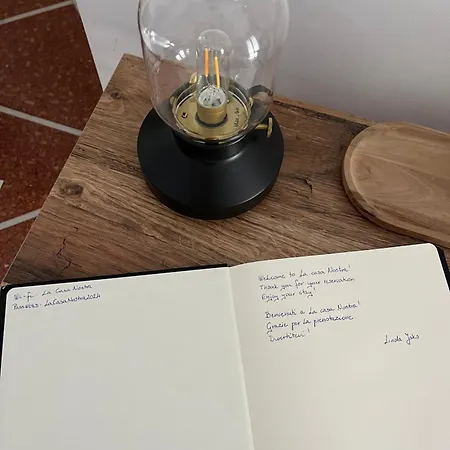 Wi-fi La Casa Nostra
Password: LaCasaNostra2024
Welcome to La casa Nostra!
Thank you for your reservation
Enjoy your stay!
Benvenuti a La casa Nostra!
Grazie per la prenotazione
Divertitevi!
Linda